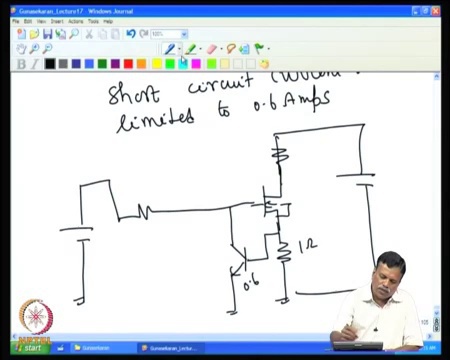 Gunasekaran_Lecture17 - Windows Journal
File Edit View Insert Actions Tools Help
100%
B I
Short circuit
limited to 0.6 Amps
1Ω
0.6
start
Gunasekaran
Gunasekaran_Lectu...